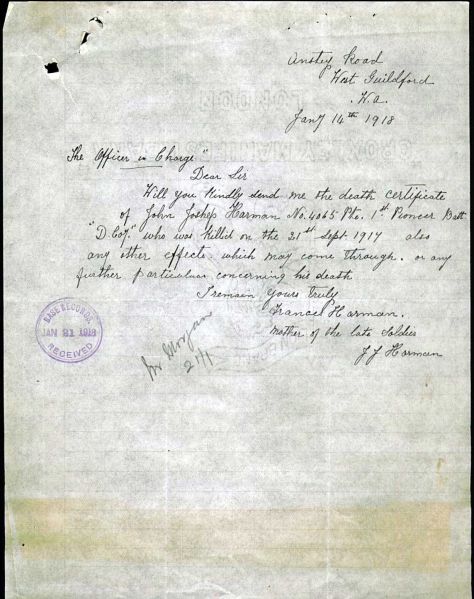 Anstey Road
West Guildford
W.A.
Jany 14th 1918
The Officer in Charge"
Dear Sir
Will you kindly send me the death certificate
of John Joshep Harman No. 4065 Pte. 1st Pioneer Batt
"D. Coy." who was killed on the 21st Sept 1917 also
any other effects which may come through. or any
further particular concerning his death
I remain Yours truly
Frances Harman.
Mother of the late Soldier
J J Harman
BASE RECORDS
JAN 21 1918
RECEIVED
Mr Morgan
21/1